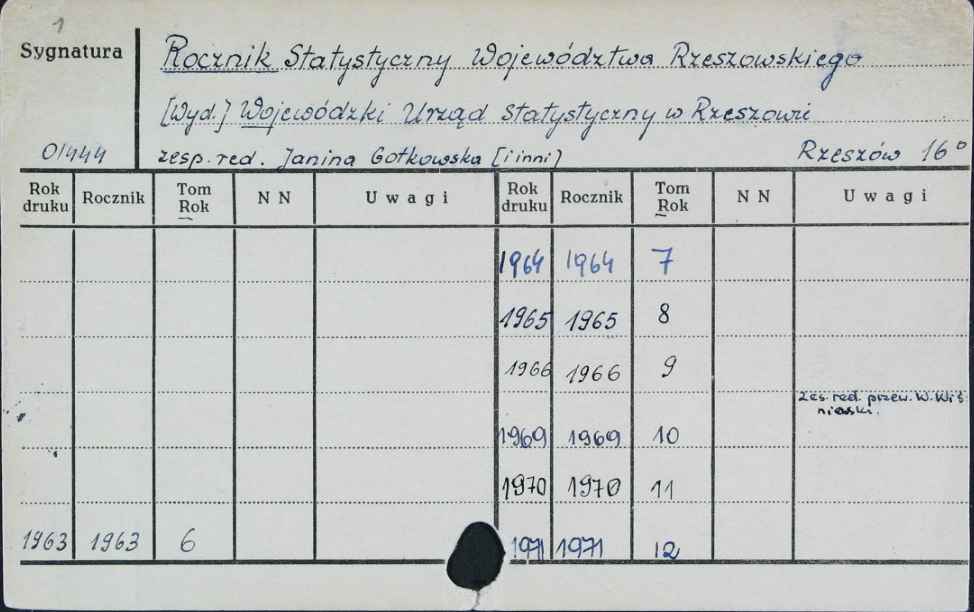 1
Sygnatura
Rocznik Statystyczny Województwa Rzeszowskiego
[Wyd.] Wojewódzki Urząd Statystyczny w Rzeszowie
01444
zesp. red. Janina Gotkowska [i inni]
Rzeszów 16°
Rok druku Rocznik Tom Rok N N Uwagi Rok druku Rocznik Tom Rok N N Uwagi
1964 1964 7
1965 1965 8
1966 1966 9
Zes. red. przew. W. Wiś
niewski.
1969 1969 10
1970 1970 11
1963 1963 6 1971 1971 12